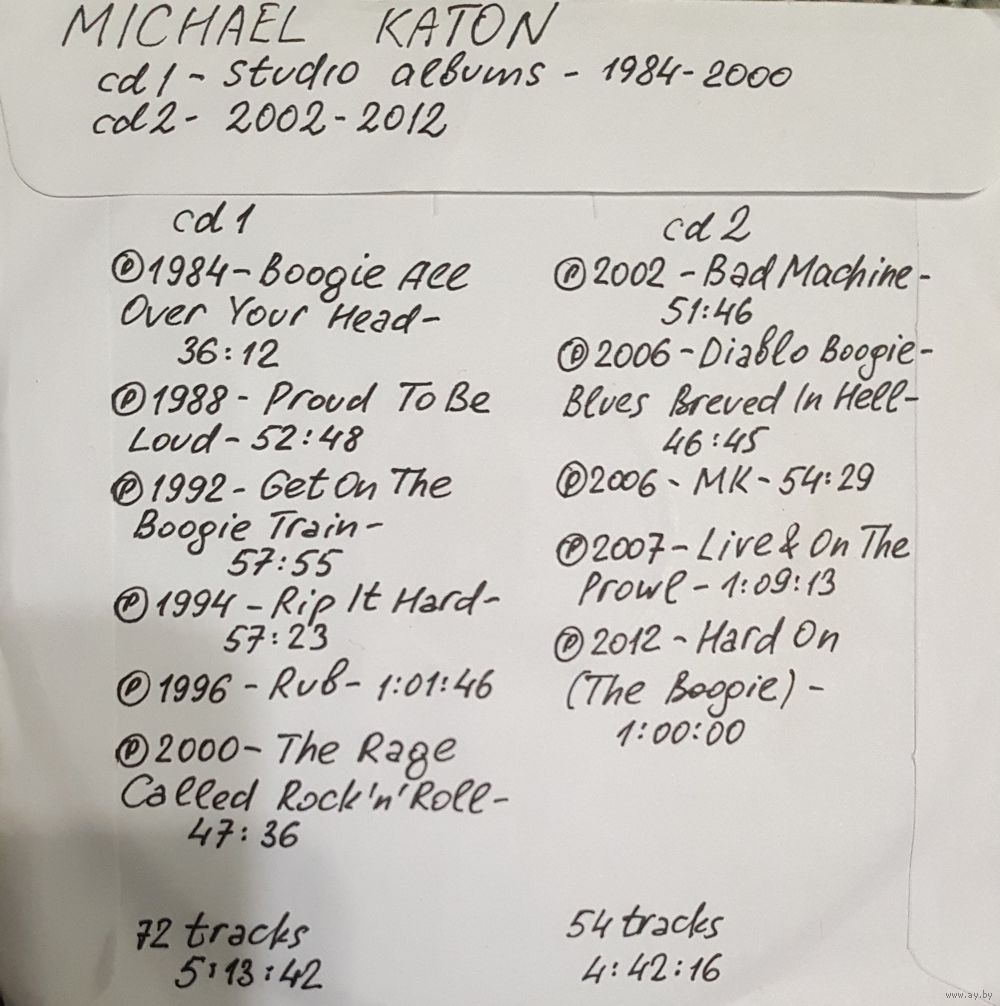 MICHAEL KATON
cd 1 - studio albums - 1984-2000
cd 2 - 2002-2012
cd 1
Ⓟ1984-Boogie All
Over Your Head-
36:12
Ⓟ1988 - Proud To Be
Loud - 52:48
Ⓟ1992 - Get On The
Boogie Train-
57:55
Ⓟ1994 - Rip It Hard-
57:23
Ⓟ1996 - Rub - 1:01:46
Ⓟ2000 - The Rage
Called Rock'n'Roll-
47:36
72 tracks
5:13:42
cd 2
Ⓟ2002 - Bad Machine-
51:46
Ⓟ2006 - Diablo Boogie-
Blues Breved In Hell-
46:45
Ⓟ2006 - MK - 54:29
Ⓟ2007 - Live & On The
Prowl - 1:09:13
Ⓟ2012 - Hard On
(The Boogie) -
1:00:00
54 tracks
4:42:16
www.ay.by